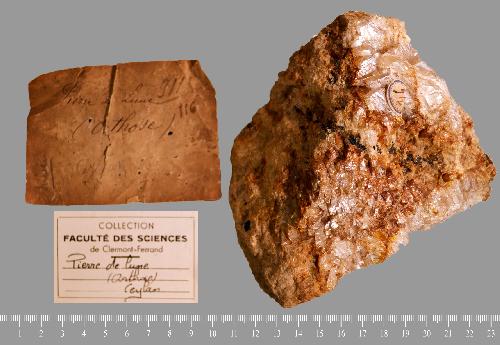 Pierre de Lune
(Orthose)
116
COLLECTION
FACULTÉ DES SCIENCES
de Clermont-Ferrand
Pierre de lune
(Orthose)
Ceylan
1 2 3 4 5 6 7 8 9 10 11 12 13 14 15 16 17 18 19 20 21 22 23